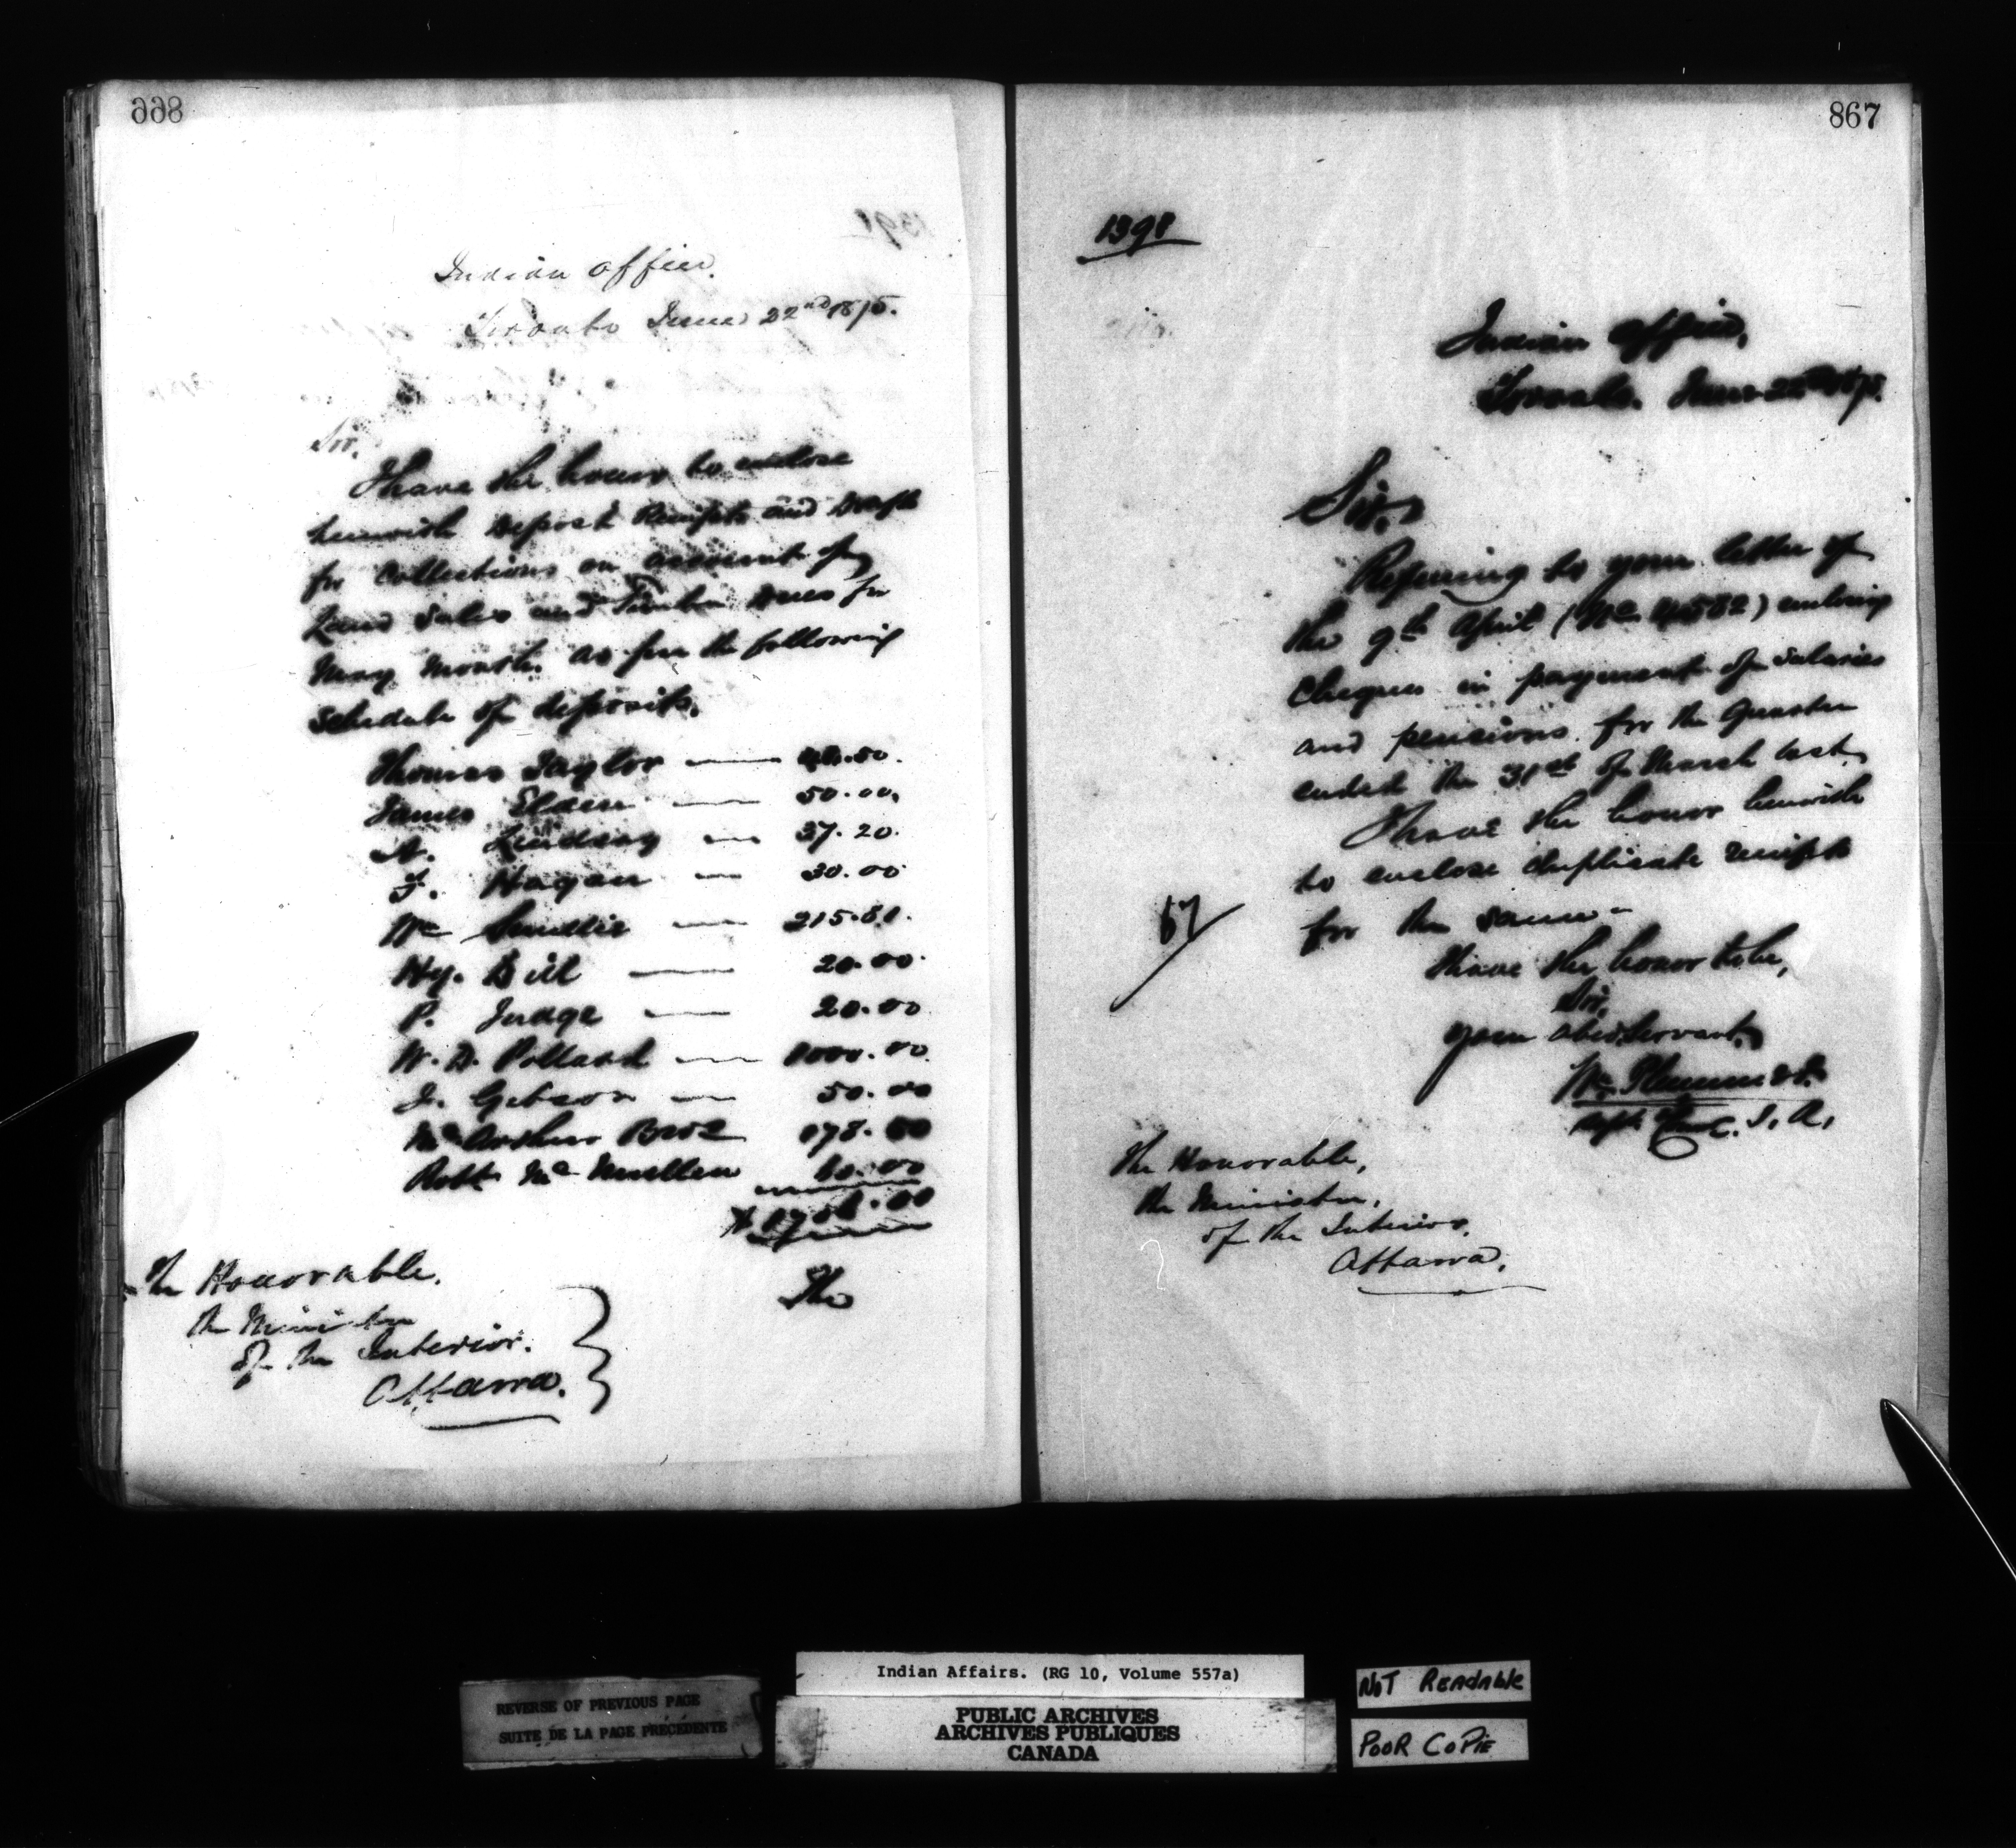 866
Indian Office.
Toronto June 22nd 1875.
Sir,
I have the honor to enclose
herewith Deposit Receipts and Draft
for collections on account of
Land Sales and Timber dues for
May month, as per the following
schedule of deposits.
Thomas Taylor — .50.
James — 50.00.
A. Lindsay — 37.20.
F. Hagan — 30.00
Wm Smellie —
Hy. Bill — 20.00.
P. Judge — 20.00
W. D. Pollard — 1000.00.
J. Gibson — 50.00
McArthur Bros 178.50
Robt McMullen 60.00
$
The Honorable,
the Minister
of the Interior.
Ottawa.
The
867
1398
Indian Office,
Toronto. June 1875.
Sir,
Referring to your letter of
the 9th April (No 4582) enclosing
cheques in payment of salaries
and pensions for the Quarter
ended the 31st of March last
I have the honor herewith
to enclose duplicate receipts
for the same —
67
I have the honor to be,
Sir,
your obed. Servant,
Wm Plummer
C. I. A.
The Honorable,
the Minister,
of the Interior.
Ottawa.
Indian Affairs. (RG 10, Volume 557a)
REVERSE OF PREVIOUS PAGE
SUITE DE LA PAGE PRÉCÉDENTE
PUBLIC ARCHIVES
ARCHIVES PUBLIQUES
CANADA
NOT READABLE
POOR COPIE